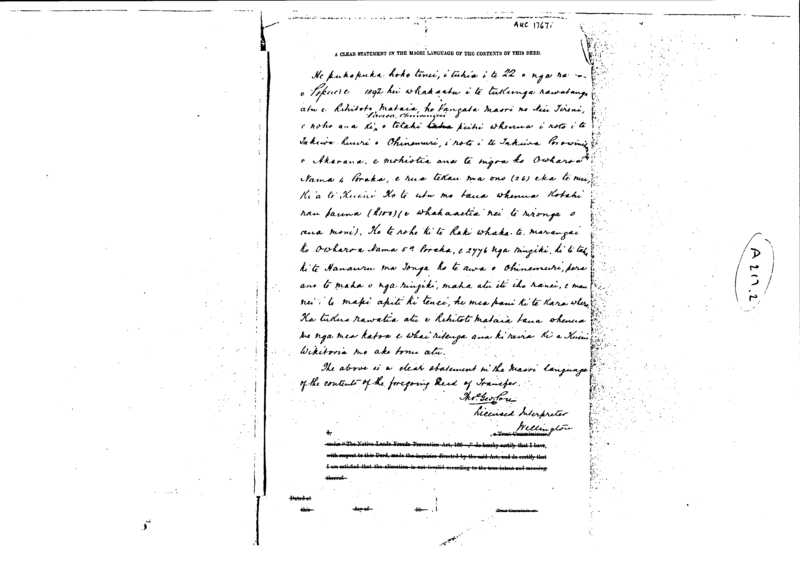 AKC 1767.
A CLEAR STATEMENT IN THE MAORI LANGUAGE OF THE CONTENTS OF THIS DEED.
He pukapuka hoko tenei, i tuhia i te 22 o nga ra
o Pepuere 1892 hei whakaatu i te tukunga rawatanga
atu e Rihitoto Mataia, he tangata maori no Niu Tireni,
e noho ana ki o tetahi whenua i roto i te
Takiwa o Ohinemuri, i roto i te Takiwa Porowini
o Akarana, e mohiotia ana te ingoa ko Owharoa
Nama 4 Poraka, e rua tekau ma ono (26) eka te nui
Ki a te Kuini Ko te utu mo taua whenua Kotahi
rau pauna (£100) (e whakaaetia nei te rironga o
ana moni). Ko te rohe ki te Raki whaka-te-marangai
ko Owharoa Nama 5 Poraka, e 2776 nga ringiki, ki te
ki te Hauauru ma Tonga ko te awa o Ohinemuri, pera
ano te maha o nga ringiki, maha atu iti iho ranei, e
nei te mapi apiti ki tenei, he mea pani ki te Kara
Ka tukua rawatia atu e Rihitoto Mataia taua whenua
me nga mea katoa e whai ritenga ana ki reira ki a Kuini
Wikitoria mo ake tonu atu.
The above is a clear statement in the Maori Language
of the contents of the foregoing Deed of Transfer.
Licensed Interpreter
Wellington
I, a Trust Commissioner
under "The Native Lands Frauds Prevention Act, 188 ," do hereby certify that I have,
with respect to this Deed, made the inquiries directed by the said Act, and do certify that
I am satisfied that the alienation is not invalid according to the true intent and meaning
thereof.
Dated at
this day of 18
Trust Commissioner.
A 217.2